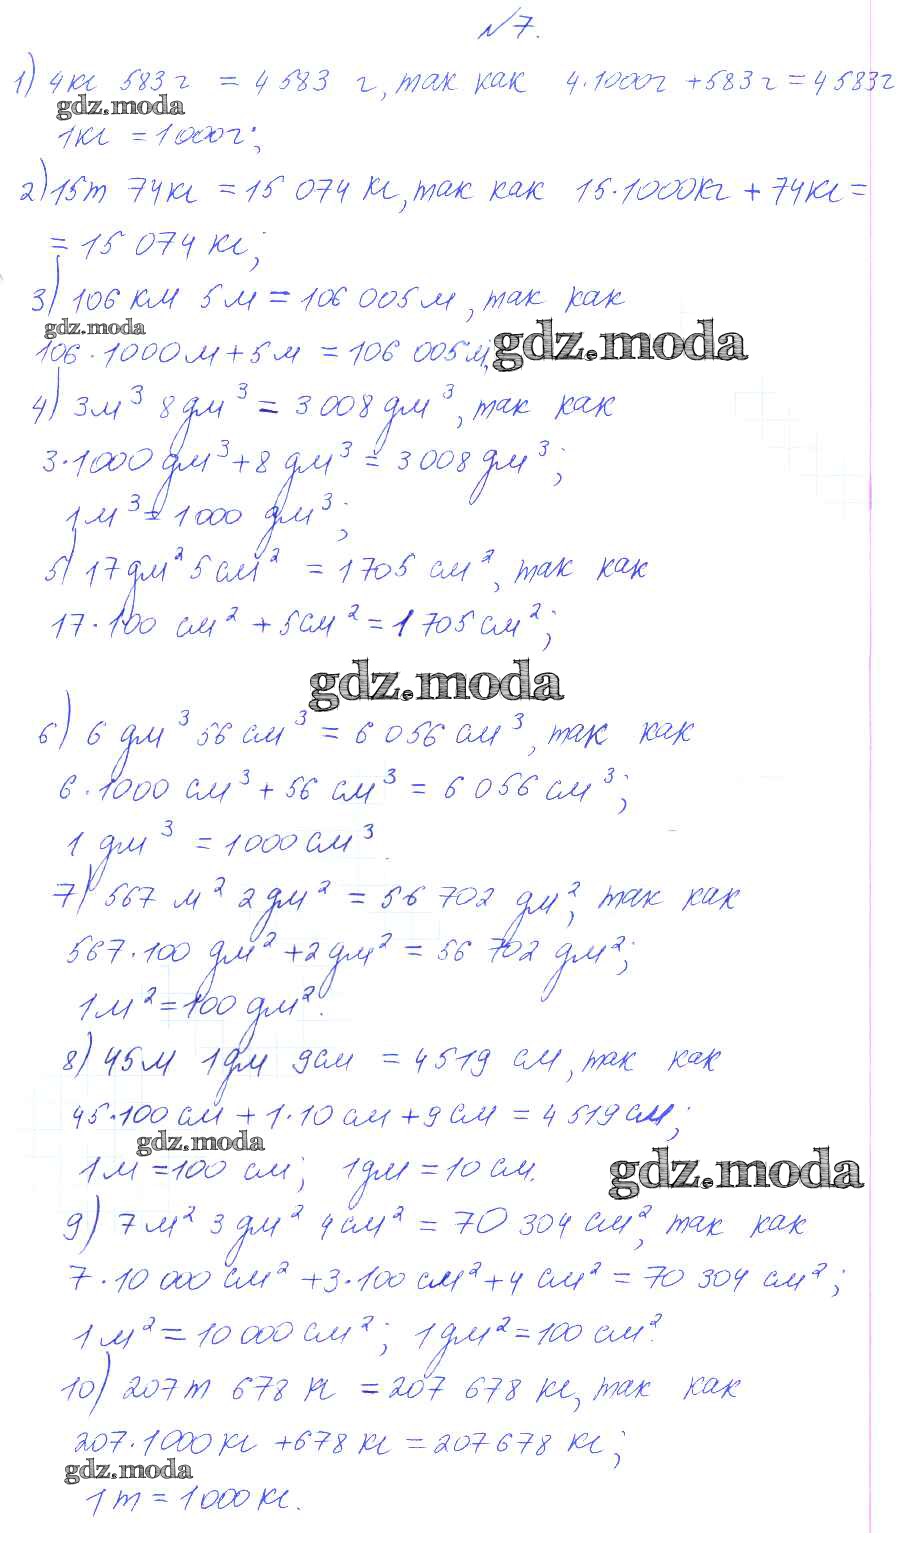 №7.
1) 4кг 583г = 4 583 г, так как 4·1000г + 583г = 4583г
gdz.moda
1кг = 1000г;
2) 15т 74кг = 15 074 кг, так как 15·1000кг + 74кг =
= 15 074 кг;
3) 106 км 5м = 106 005м, так как
gdz.moda
106·1000м + 5м = 106 005м;
gdz.moda
4) 3м³ 8дм³ = 3 008дм³, так как
3·1000 дм³ + 8 дм³ = 3 008дм³;
1м³ = 1000 дм³;
5) 17дм² 5см² = 1705 см², так как
17·100 см² + 5см² = 1 705см²;
gdz.moda
6) 6 дм³ 56 см³ = 6 056 см³, так как
6·1000 см³ + 56 см³ = 6 056 см³;
1 дм³ = 1000 см³
7) 567 м² 2дм² = 56 702 дм², так как
567·100 дм² + 2дм² = 56 702 дм²;
1м² = 100 дм².
8) 45м 1дм 9см = 4519 см, так как
45·100 см + 1·10 см + 9 см = 4 519см;
gdz.moda
1м = 100 см; 1дм = 10 см.
gdz.moda
9) 7м² 3 дм² 4см² = 70 304 см², так как
7·10 000 см² + 3·100 см² + 4 см² = 70 304 см²;
1м² = 10 000 см²; 1дм² = 100 см².
10) 207т 678 кг = 207 678 кг, так как
207·1000кг + 678 кг = 207678 кг;
gdz.moda
1т = 1000кг.